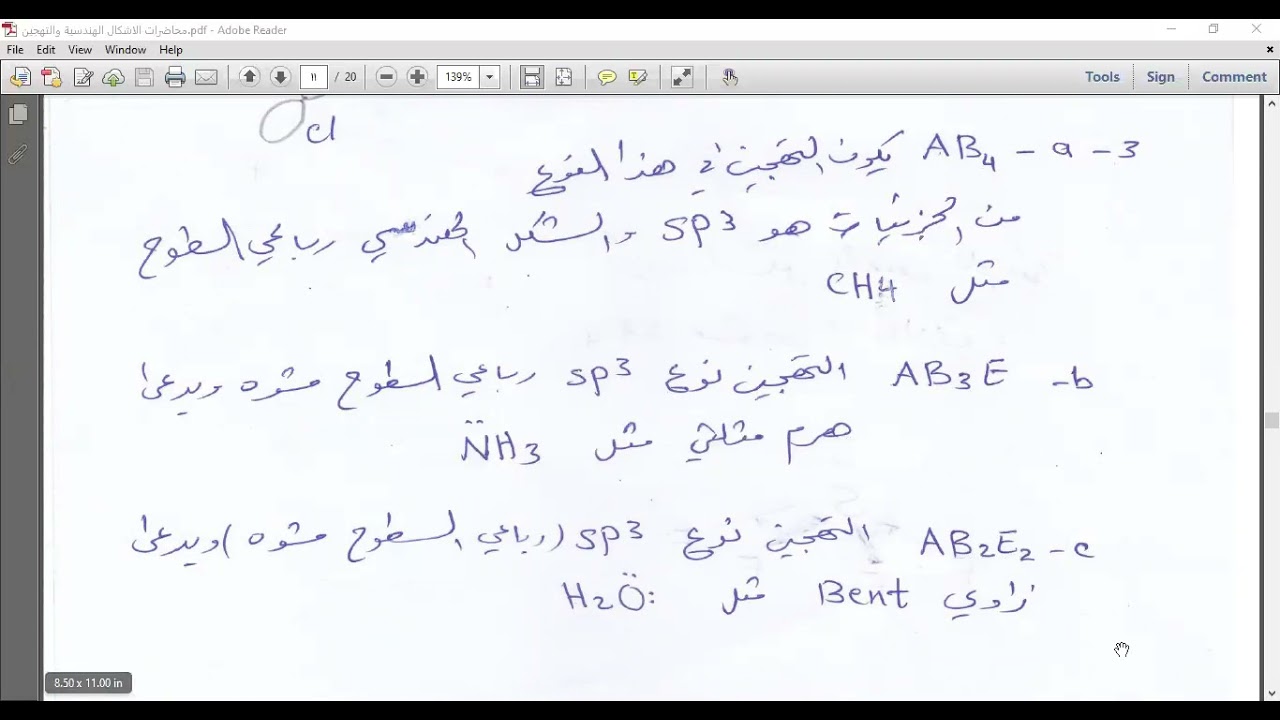 محاضرات الاشكال الهندسية والتهجين.pdf - Adobe Reader
File Edit View Window Help
١١ / 20 139% Tools Sign Comment
Cl
3 - a - AB4 يكون التهجين في هذا النوع
من الجزيئات هو sp3 والشكل الهندسي رباعي السطوح
مثل CH4
b- AB3E التهجين نوع sp3 رباعي السطوح مشوه ويدعى
هرم مثلثي مثل N̈H3
c - AB2E2 التهجين نوع sp3 (رباعي السطوح مشوه) ويدعى
زاوي Bent مثل H2Ö:
8.50 x 11.00 in